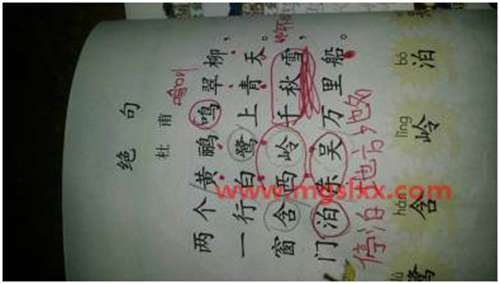 绝句
杜甫
鸣叫
两个黄鹂鸣翠柳，
一行白鹭上青天。
窗含西岭千秋雪，
门泊东吴万里船。
停泊 地方 地名
hán lǐng bó
鹭 含 岭 泊
www.mgslxx.com